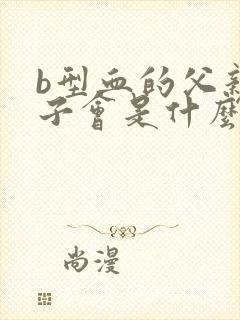 b型血的父亲
子會是什麼
尚漫